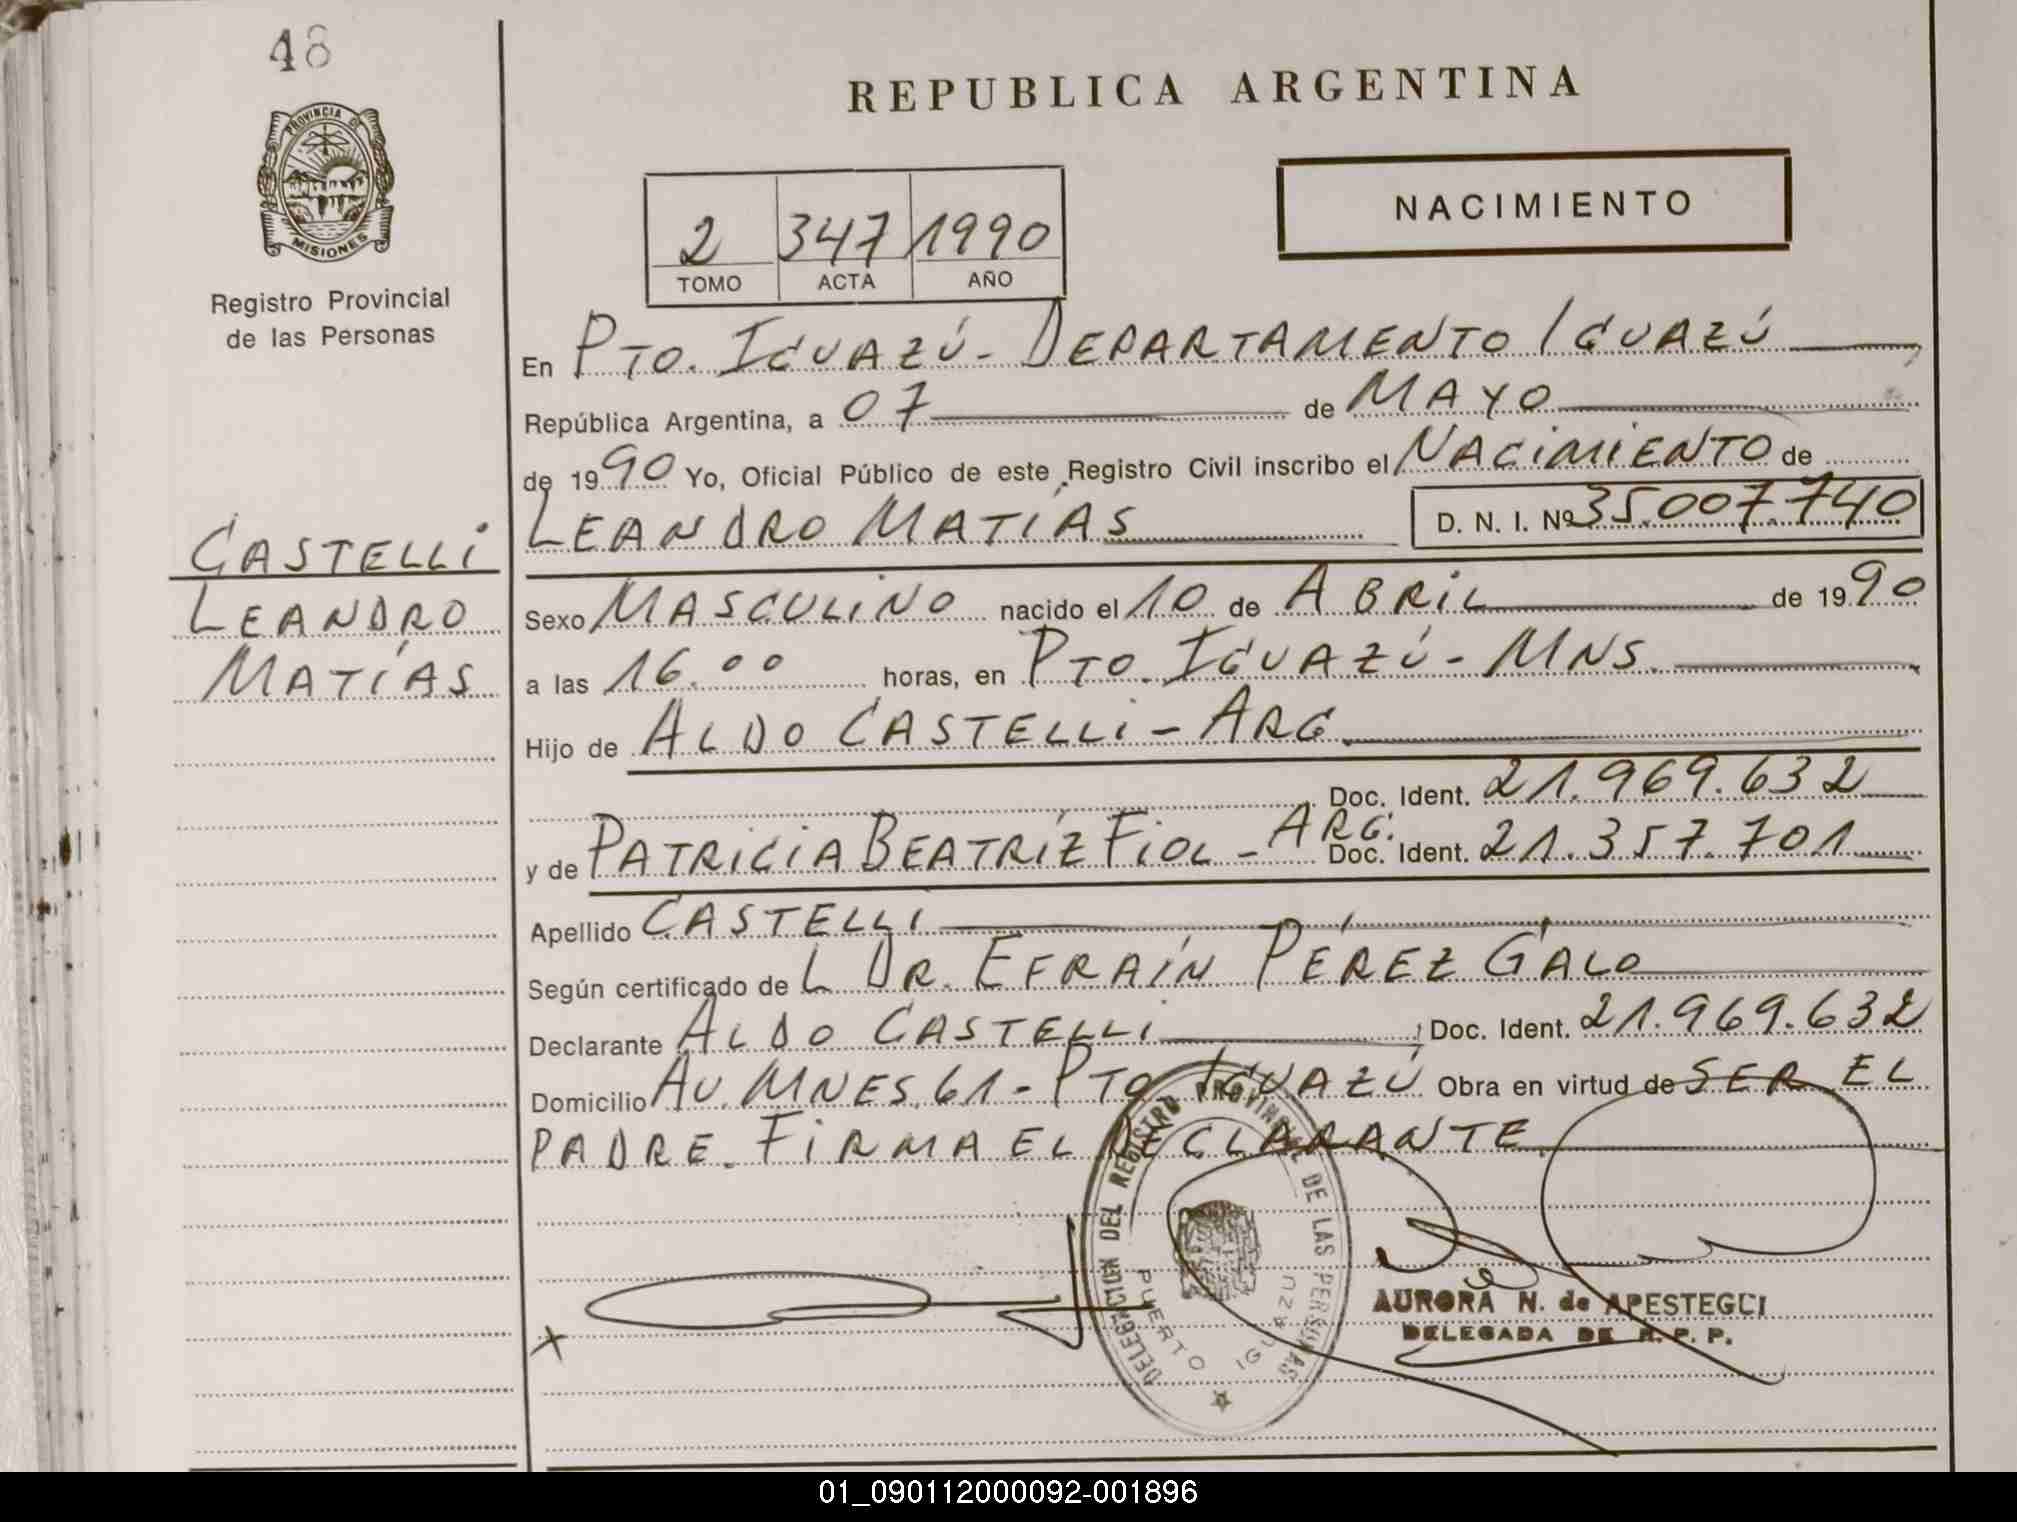 48
PROVINCIA DE
MISIONES
Registro Provincial
de las Personas
CASTELLI
LEANDRO
MATÍAS
REPUBLICA ARGENTINA
NACIMIENTO
2 347 1990
TOMO ACTA AÑO
En PTO. IGUAZÚ - DEPARTAMENTO IGUAZÚ
República Argentina, a 07 de MAYO
de 1990 Yo, Oficial Público de este Registro Civil inscribo el NACIMIENTO de
LEANDRO MATÍAS D. N. I. Nº 35.007.740
Sexo MASCULINO nacido el 10 de ABRIL de 1990
a las 16.00 horas, en PTO. IGUAZÚ - MNS.
Hijo de ALDO CASTELLI - ARG.
Doc. Ident. 21.969.632
y de PATRICIA BEATRÍZ FIOL - ARG. Doc. Ident. 21.357.701
Apellido CASTELLI
Según certificado de L DR. EFRAÍN PÉREZ GALO
Declarante ALDO CASTELLI Doc. Ident. 21.969.632
Domicilio AV. MNES. 61 - PTO IGUAZÚ Obra en virtud de SER EL
PADRE. FIRMA EL DECLARANTE.
DELEGACION DEL REGISTRO PROVINCIAL DE LAS PERSONAS
PUERTO IGUAZU
AURORA N. de APESTEGUI
DELEGADA DE R. P. P.
X
01_090112000092-001896